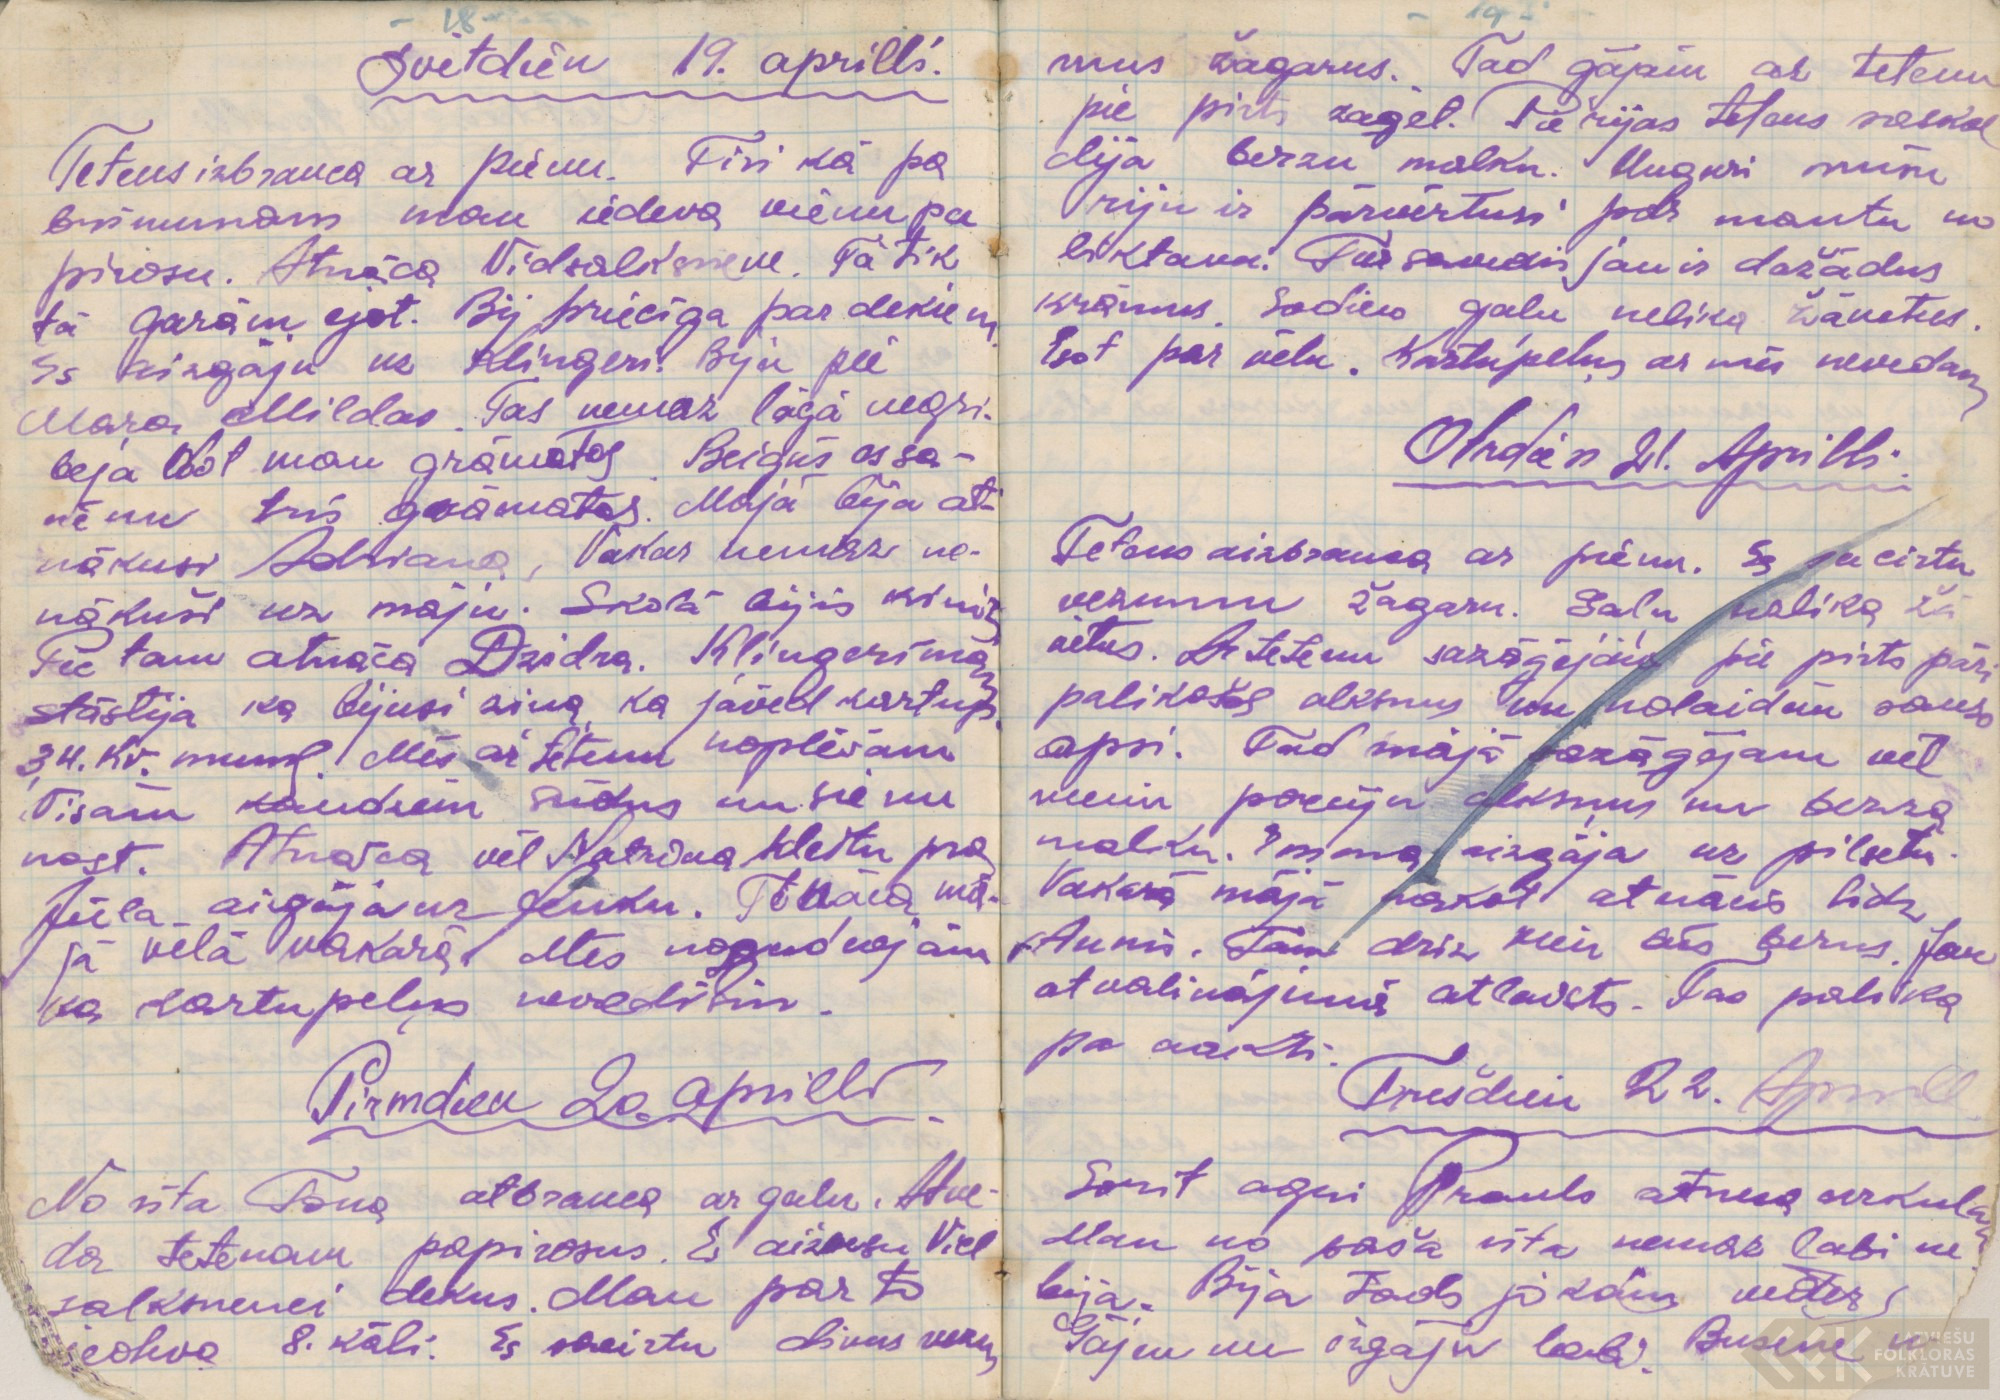 - 18 -
Svētdien 19. aprillī.
Tetens izbrauca ar pienu. Tīri kā pa
brīnumam man iedeva vienu pa
pirosu. Atnāca Vidsalksnene. Tā tik
tā garām ejot. Bij priecīga par dekiem
Es aizgāju uz Klingeri. Biju pie
Mara Mildas. Tas nemaz lāgā negri-
beja dot man grāmatas. Beigās es sa-
ņēmu trīs grāmatas. Mājā bija at-
nākusi Adriana, Vakar nemaz ne-
nākuši uz māju. Skolā bijis kino
Pie tam atnāca Dzidra. Klingerimā
stāstija ka bijusi ziņa, ka jāved kartup.
3,4. kv. mums. Mēs ar tetenu noplēsām
Visām kaudzēm sūdus un sienu
nost. Atnāca vēl Natrina kleitu pra
aizgāja uz Jenku. Tā nāca mā-
jā vēlā vakarā. Mēs nogudrojām
ka kartupeļus nevedīsim.
Pirmdien 20. aprillī
No rīta Toņa atbrauca ar galu. Atve-
da tetenam papirosus. Es aiznesu Vid
salksnenei dekus. Man par to
iedeva 8. kāli. Es sacirtu divus vezu
- 19 -
mus žagarus. Tad gājām ar tetenu
pie pirts zāģēt. Pie rijas tetens saskal
dija berzu malku. Unguri mūsu
riju ir pārvērtusi par mantu no
liktavu. Tur savedis jau ir dažādus
krāmus. Šodien galu nelika žāvētus.
Esot par vēlu. Kartupeļus ar mēs nevedam
Otrdien 21. Aprillī.
Tetens aizbrauca ar pienu. Es sacirtu
vezumu žagaru. Galu nelika žā
vētus. Ar tetenu sazāģējām pie pirts pāri
palikošos alksnus un nolaidām sauso
apsi. Tad mājā sazāģējam vēl
vienu porciju alksnus un berza
malku. Emma aizgāja uz pilsētu.
Vakarā mājā nakot atnācis līdz
Annis. Tam drīz bus berns. Jau
atvaļinājumā atlaists. Tas palika
pa nakti.
Trešdien 22. Aprill
Sorīt agri Prauls atnesa cirkulā
Man no paša rīta nemaz labi ne
bija. Bija tāds jokains vēders
Gāju un izgāju labi. Busene
LATVIEŠU
FOLKLORAS
KRĀTUVE